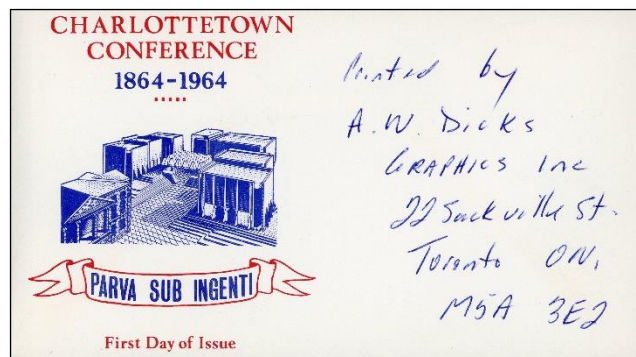 CHARLOTTETOWN
CONFERENCE
1864-1964
PARVA SUB INGENTI
First Day of Issue
Printed by
A.W. Dicks
GRAPHICS Inc
22 Sackville St.
Toronto ON,
M5A 3E2